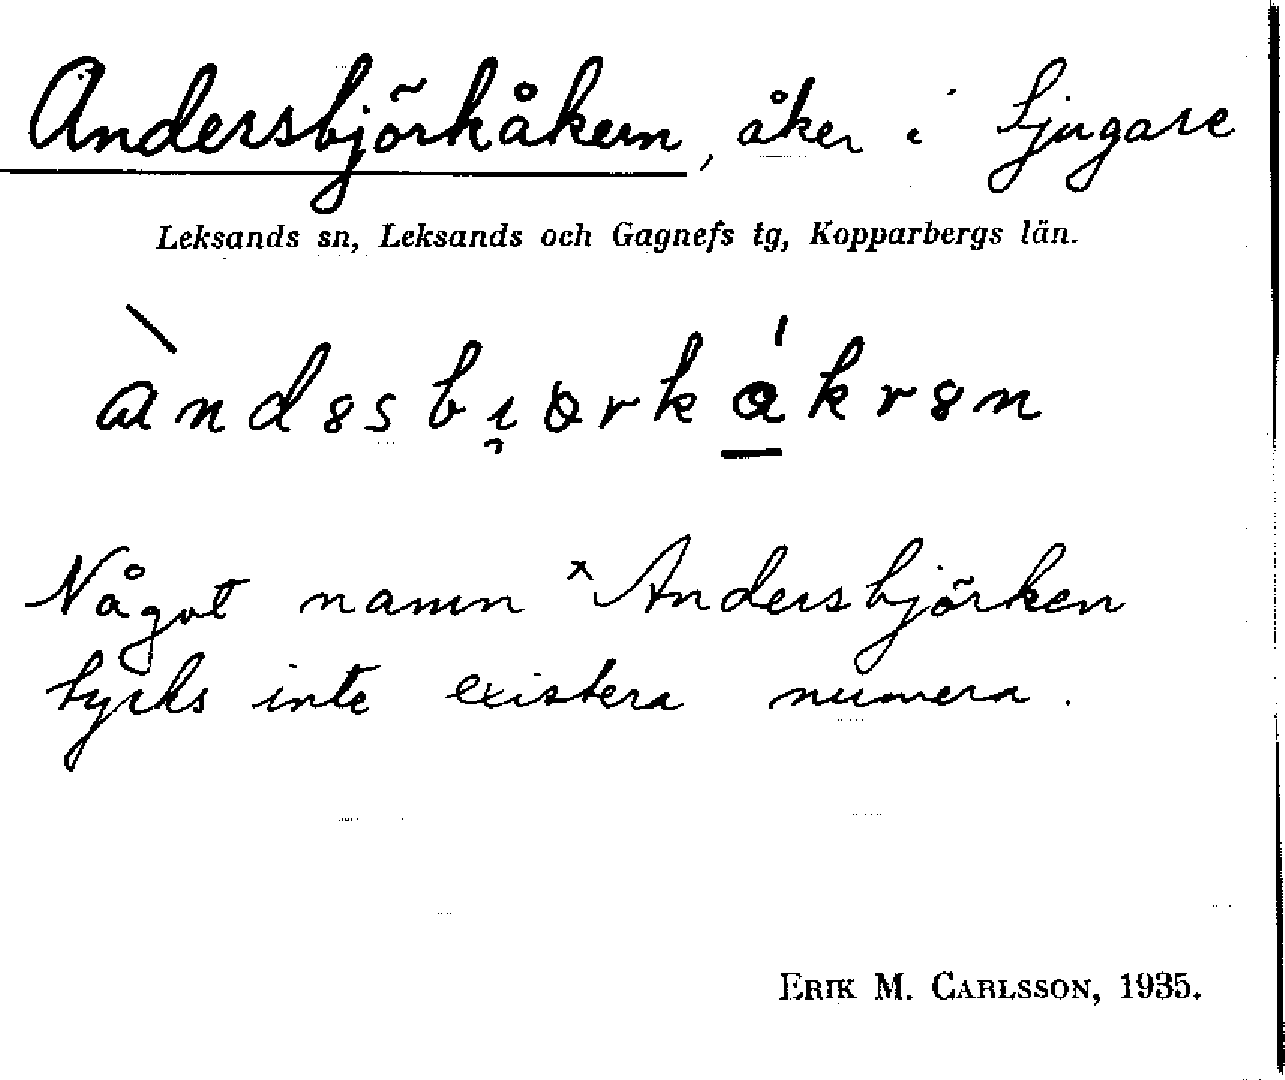 Andersbjörkåkern, åker i Ljugare
Leksands sn, Leksands och Gagnefs tg, Kopparbergs län.
Något namn ˣAndersbjörken
tycks inte existera numera.
ERIK M. CARLSSON, 1935.